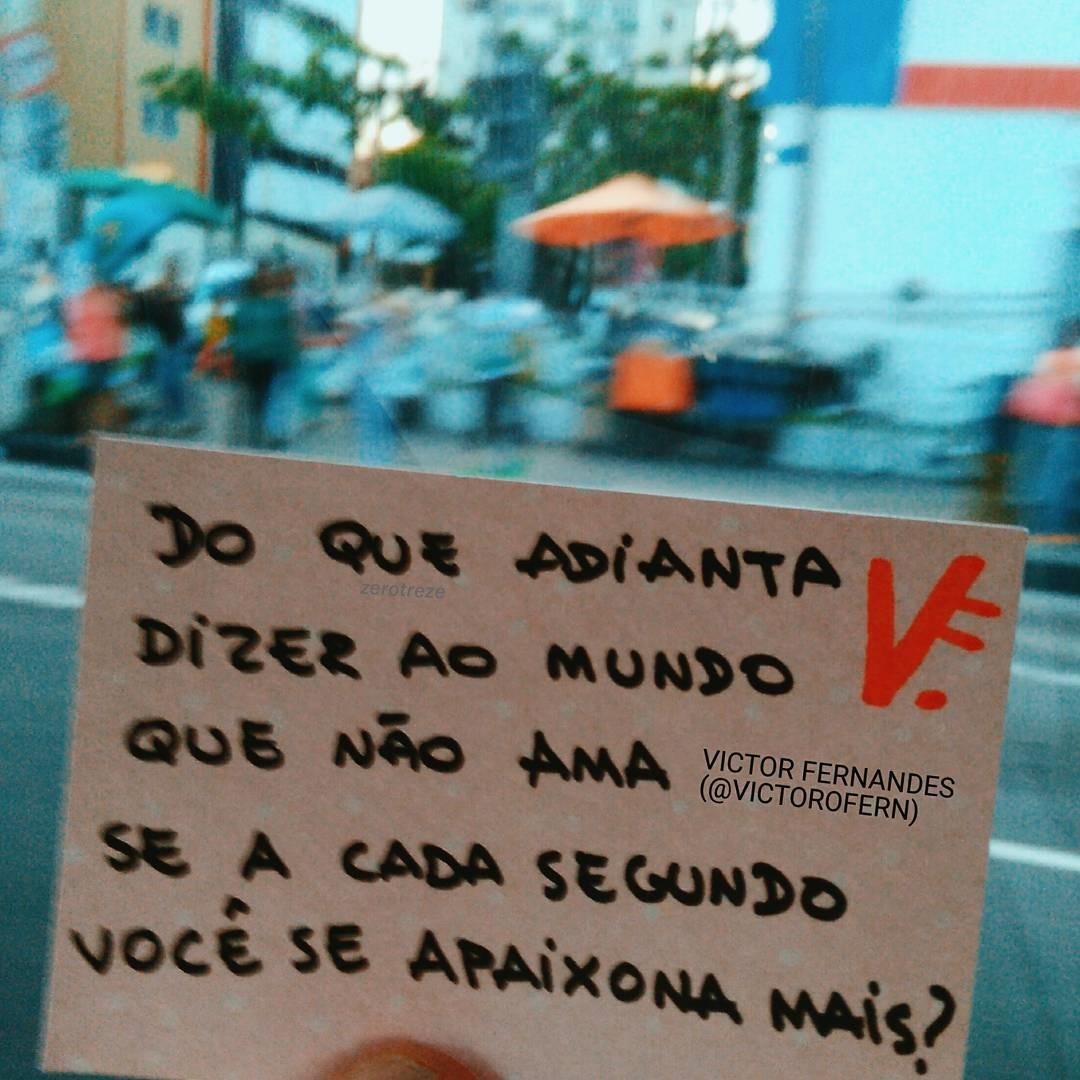 DO QUE ADIANTA
zerotreze
DIZER AO MUNDO
VF.
QUE NÃO AMA
VICTOR FERNANDES
(@VICTOROFERN)
SE A CADA SEGUNDO
VOCÊ SE APAIXONA MAIS?